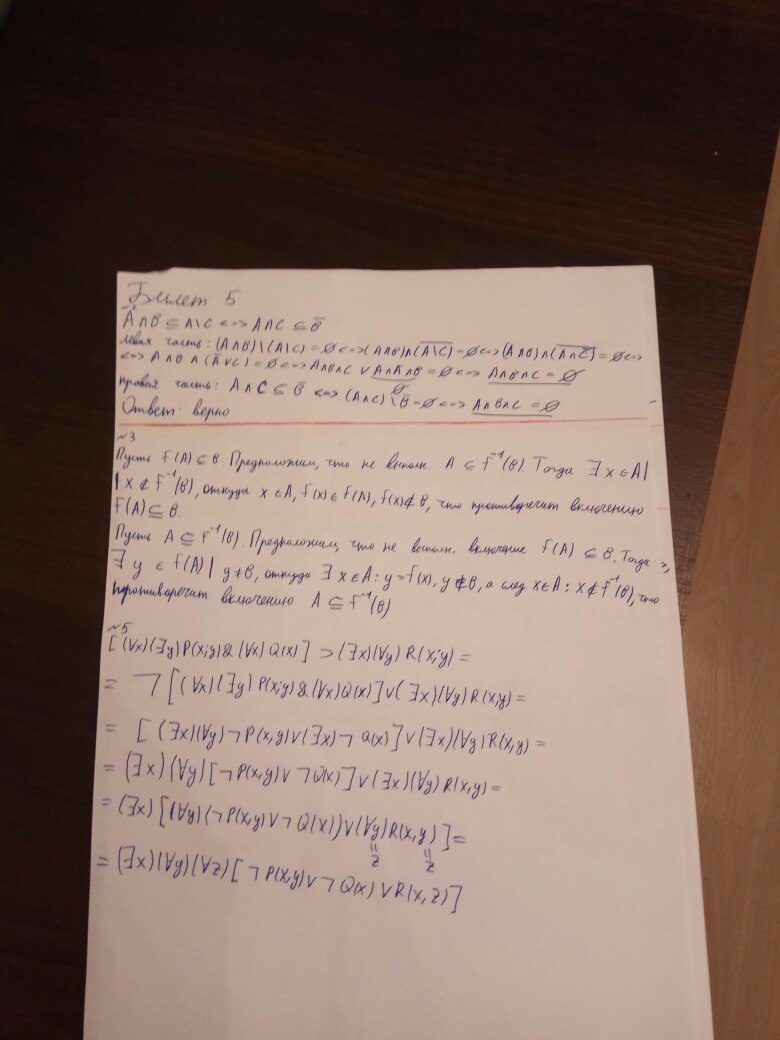 Билет 5
A∩B ⊆ A\C <=> A∩C ⊆ B̅
левая часть: (A∩B)\(A\C) = ∅ <=> (A∩B)∩(A\C)̅ = ∅ <=> (A∩B)∩(A∩C̅)̅ = ∅ <=>
<=> A∩B∩(A̅∪C) = ∅ <=> A∩B∩C ∪ A∩A̅∩B = ∅ <=> A∩B∩C = ∅
∅
правая часть: A∩C ⊆ B̅ <=> (A∩C)\B̅ = ∅ <=> A∩B∩C = ∅
Ответ: верно
~3
Пусть f(A) ⊆ B. Предположим, что не выполн. A ⊆ f⁻¹(B). Тогда ∃ x ∈ A |
| x ∉ f⁻¹(B), откуда x ∈ A, f(x) ∈ f(A), f(x) ∉ B, что противоречит включению
f(A) ⊆ B.
Пусть A ⊆ f⁻¹(B). Предположим, что не выполн. включение f(A) ⊆ B. Тогда
∃ y ∈ f(A) | y ∉ B, откуда ∃ x ∈ A: y = f(x), y ∉ B, а след x ∈ A: x ∉ f⁻¹(B), что
противоречит включению A ⊆ f⁻¹(B)
~5
[(∀x)(∃y)P(x;y)&(∀x)Q(x)] ⊃ (∃x)(∀y)R(x;y) =
= ¬[(∀x)(∃y)P(x;y)&(∀x)Q(x)]∨(∃x)(∀y)R(x,y) =
= [(∃x)(∀y)¬P(x,y)∨(∃x)¬Q(x)]∨(∃x)(∀y)R(x,y) =
= (∃x)(∀y)[¬P(x,y)∨¬Q(x)]∨(∃x)(∀y)R(x,y) =
= (∃x)[(∀y)(¬P(x,y)∨¬Q(x))∨(∀y)R(x,y)] =
= =
z z
= (∃x)(∀y)(∀z)[¬P(x,y)∨¬Q(x)∨R(x,z)]